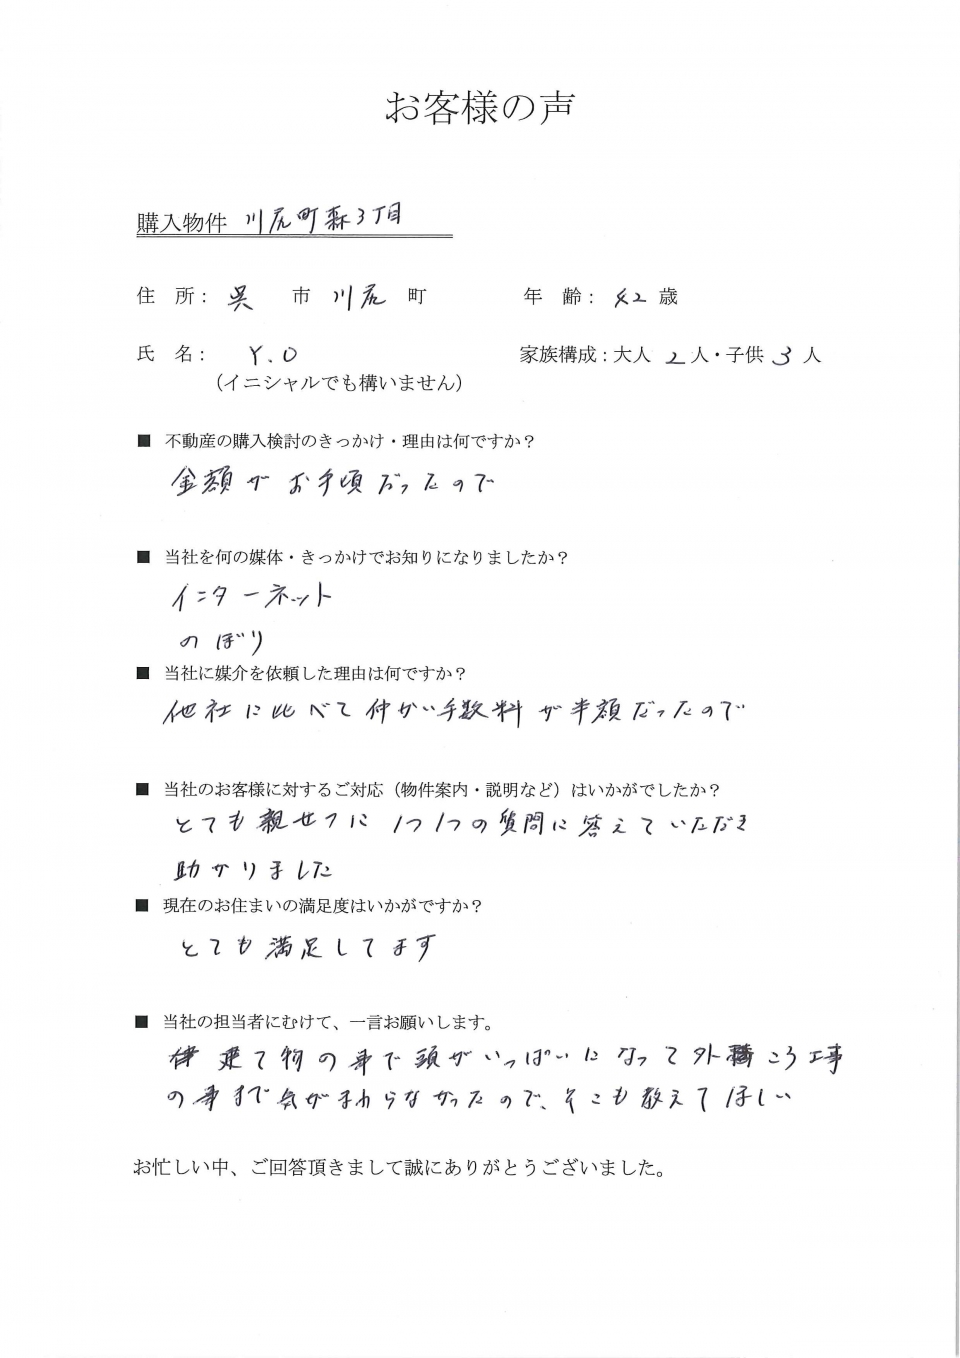 お客様の声
購入物件 川尻町森3丁目
住 所： 呉 市 川尻 町 年 齢： 42 歳
氏 名： Y.O 家族構成：大人 2 人・子供 3 人
（イニシャルでも構いません）
■ 不動産の購入検討のきっかけ・理由は何ですか？
金額がお手頃だったので
■ 当社を何の媒体・きっかけでお知りになりましたか？
インターネット
のぼり
■ 当社に媒介を依頼した理由は何ですか？
他社に比べて仲かい手数料が半額だったので
■ 当社のお客様に対するご対応（物件案内・説明など）はいかがでしたか？
とても親せつに1つ1つの質問に答えていただき
助かりました
■ 現在のお住まいの満足度はいかがですか？
とても満足してます
■ 当社の担当者にむけて、一言お願いします。
建て物の事で頭がいっぱいになって外こう工事
の事まで気がまわらなかったので、そこも教えてほしい
お忙しい中、ご回答頂きまして誠にありがとうございました。